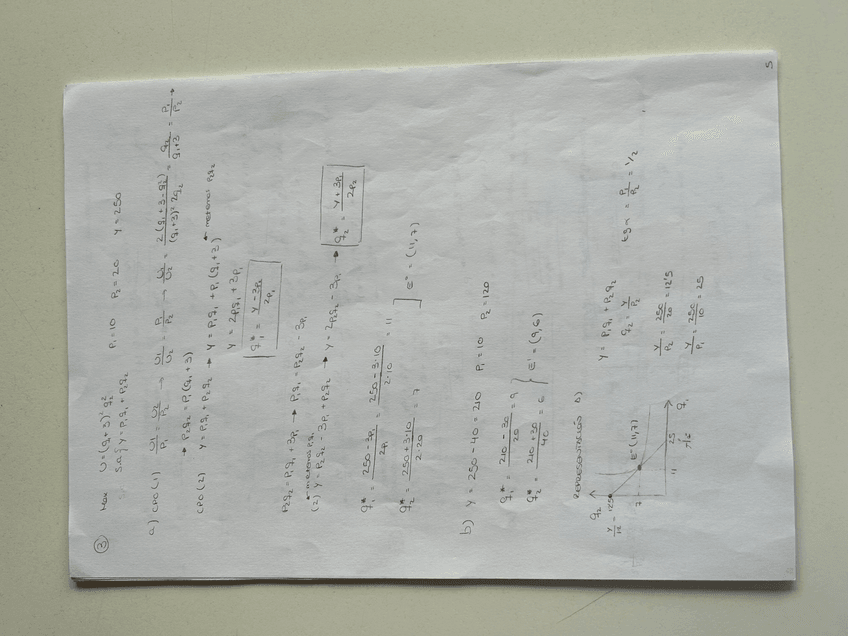 ③ Max U = (q₁+3)² q₂² P₁ = 10 P₂ = 20 Y = 250
s.a. { Y = P₁q₁ + P₂q₂
a) CPO (1) U1/P₁ = U2/P₂ → U1/U2 = P₁/P₂ → U1/U2 = 2(q₁+3·q₂²)/(q₁+3)²·2q₂ = q₂/q₁+3 = P₁/P₂ →
→ P₂q₂ = P₁(q₁+3)
CPO (2) Y = P₁q₁ + P₂q₂ → Y = P₁q₁ + P₁(q₁+3) metemos P₂q₂
Y = 2P₁q₁ + 3P₁
q₁* = Y - 3P₁/2P₁
P₂q₂ = P₁q₁ + 3P₁ → P₁q₁ = P₂q₂ - 3P₁
metemos P₁q₁
(2) Y = P₂q₂ - 3P₁ + P₂q₂ → Y = 2P₂q₂ - 3P₁ → q₂* = Y + 3P₁/2P₂
q₁* = 250 - 3P₁/2P₁ = 250 - 3·10/2·10 = 11
q₂* = 250 + 3·10/2·20 = 7
} E* = (11,7)
b) Y = 250 - 40 = 210 P₁ = 10 P₂ = 20
q₁* = 210 - 30/20 = 9
q₂* = 210 + 30/40 = 6
} E' = (9,6)
REPRESENTACIÓN
q₂
Y/P₂ = 12'5
7
E* (11,7)
11
25
q₁
Y/P₁
Y = P₁q₁ + P₂q₂
q₂ = Y/P₂
Y/P₂ = 250/20 = 12'5
Y/P₁ = 250/10 = 25
tg α = P₁/P₂ = 1/2
5